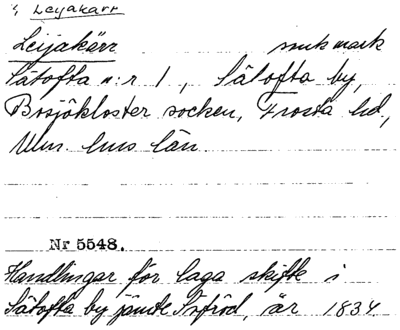 Leijakärr
Leijakärr sankmark
Sätofta n:r 1, Sätofta by,
Bosjökloster socken, Frosta hd,
Mlm. hus län.
Nr 5548.
Handlingar för laga skifte i
Sätofta by jämte år 1834.